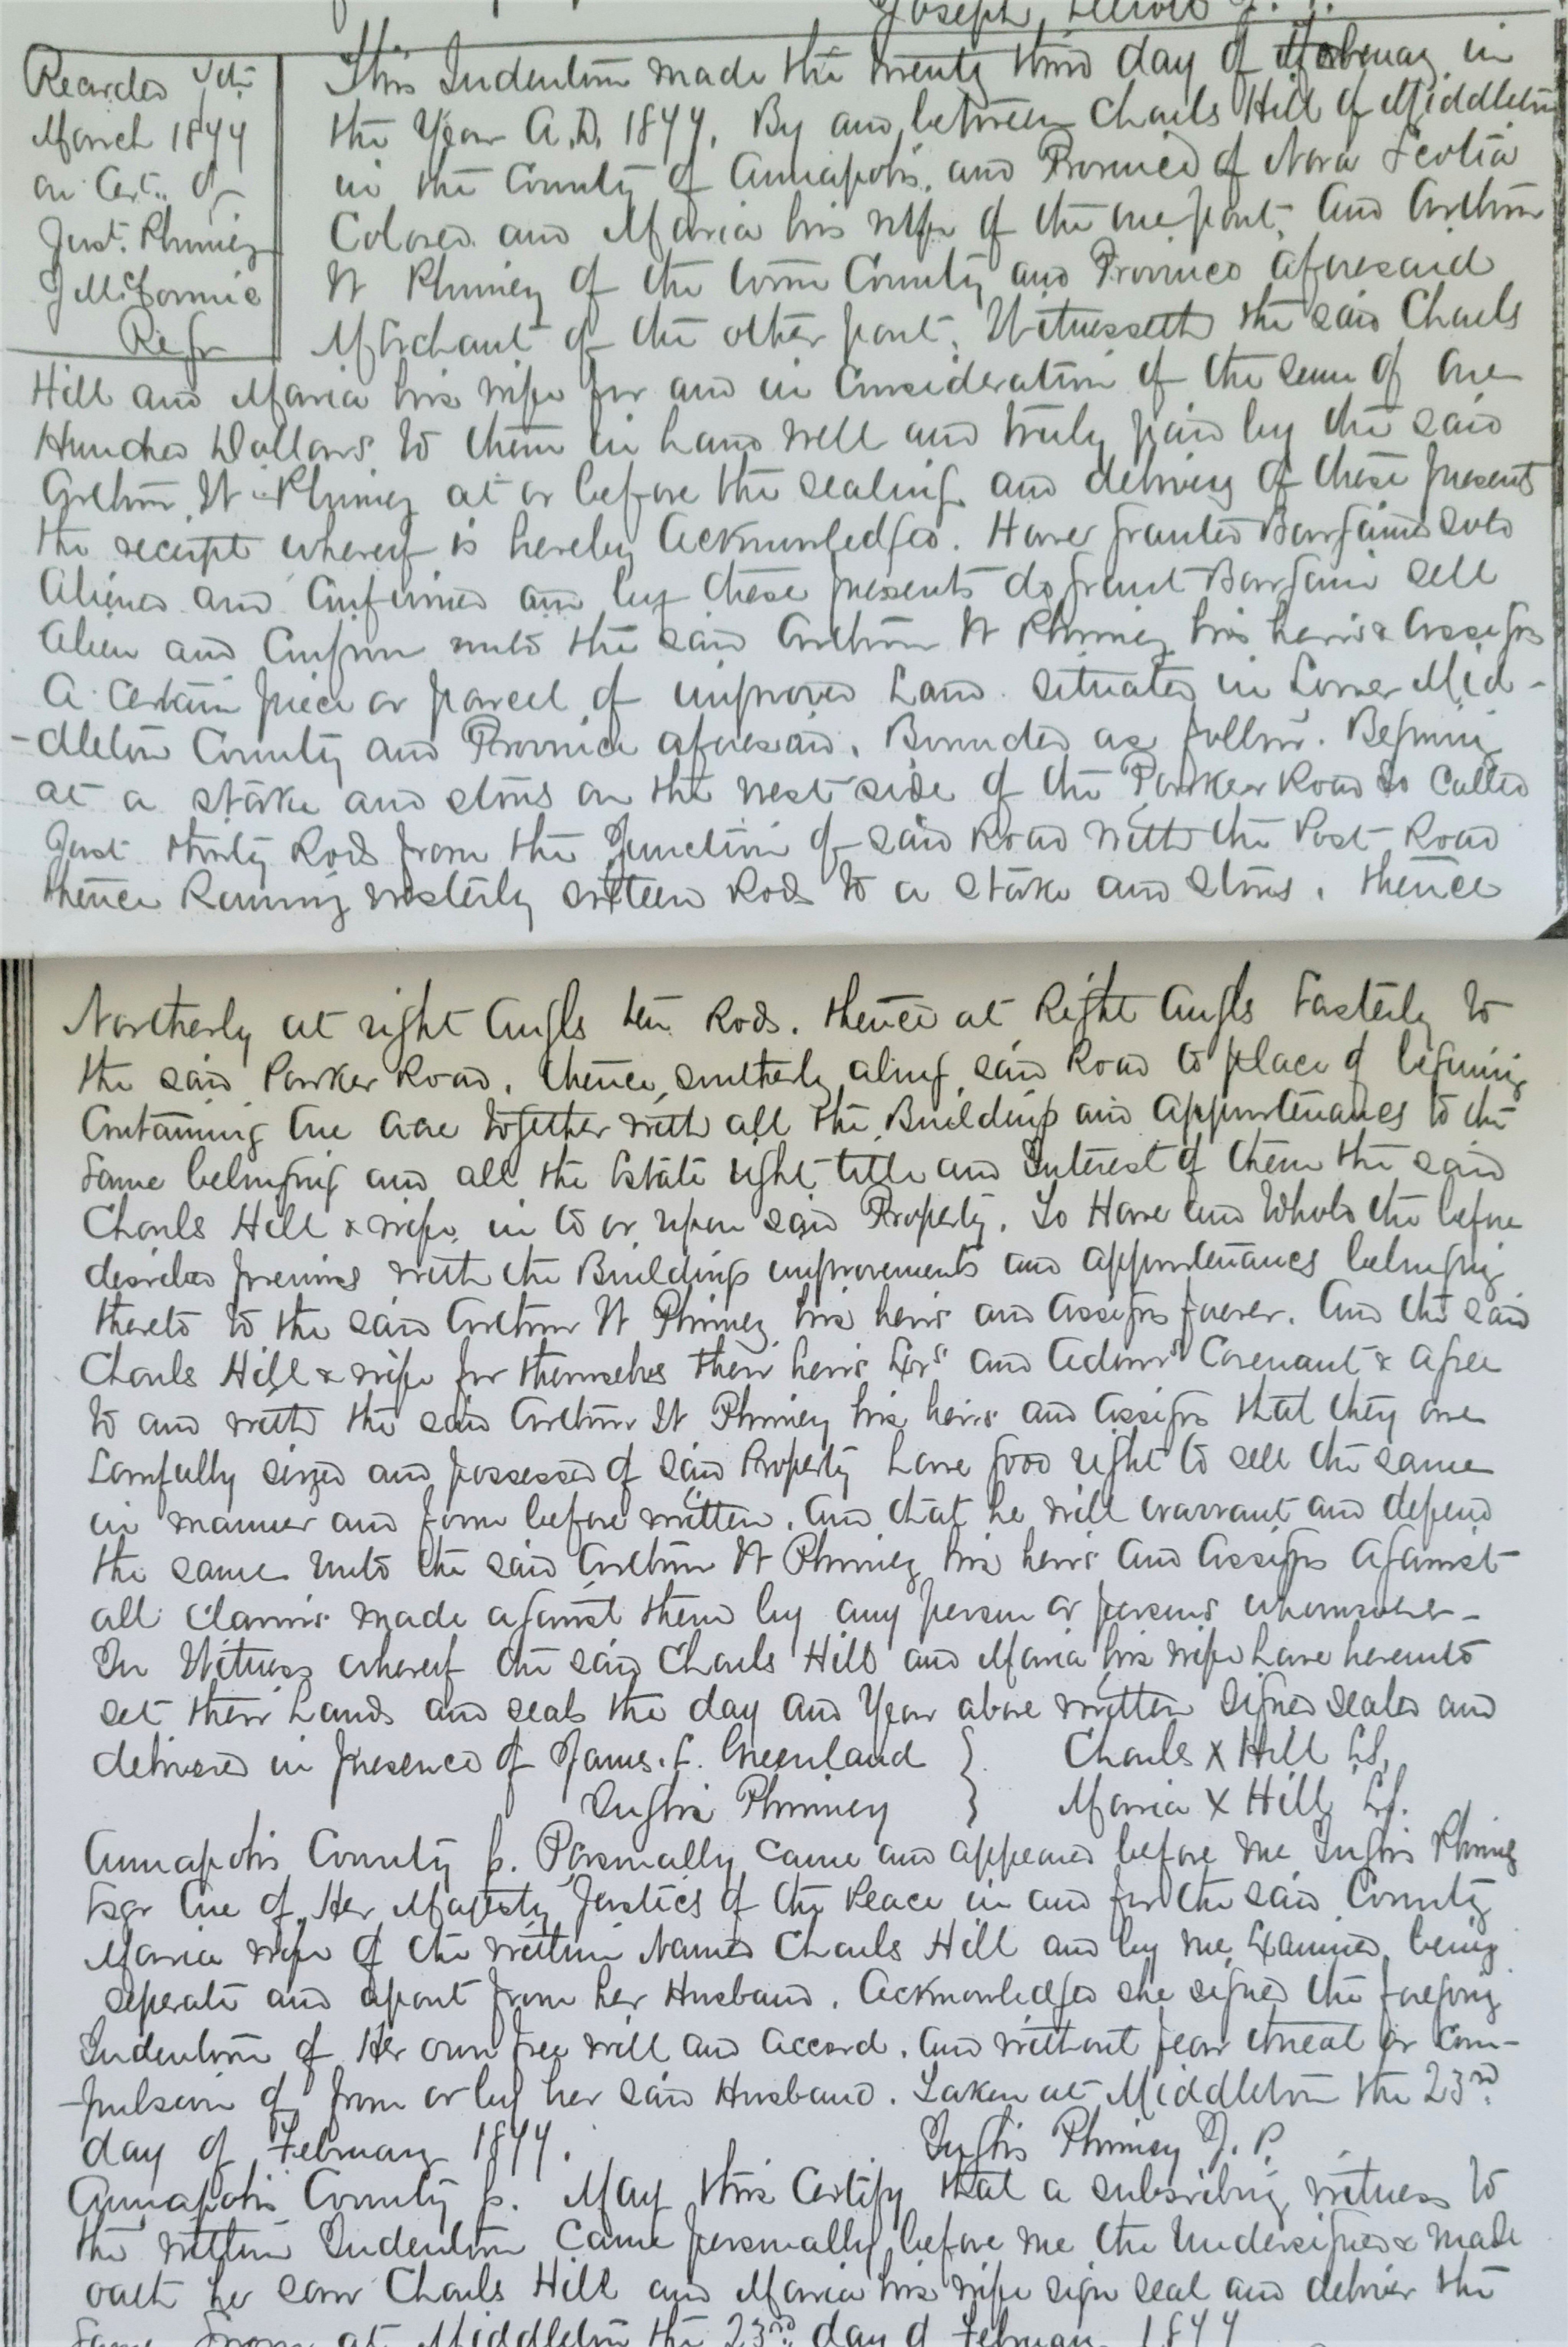 Joseph
Recorded 7th
March 1844
on Cert. of
Just. Phinney
J McCormic
Regr
This Indenture made the twenty third day of February in
the Year A.D. 1844. By and between Charls Hill of Middleton
in the County of Annapolis, and Province of Nova Scotia
Colored and Maria his wife of the one part, And Arthur
W Phinney of the town County and Province aforesaid
Marchant of the other part, Witnesseth the said Charls
Hill and Maria his wife for and in Consideration of the sum of One
Hundred Dollars to them in hand well and truly paid by the said
Arthur W Phinney at or before the sealing and delivery of these presents
the receipt whereof is hereby Acknowledged. Have granted Bargained Sold
Aliened and Confirmed and by these presents do grant Bargain Sell
Alien and Confirm unto the said Arthur W Phinney his heirs & assigns
A Certain piece or parcel of improved Land situated in Lower Mid-
-dleton County and Province aforesaid. Bounded as follows. Begining
at a stake and stons on the west side of the Parker Road so Called
Just thirty Rods from the Junction of said Road with the Post Road
thence Running westerly sixteen Rods to a stake and stons. thence
Northerly at right Angls ten Rods. thence at Right Angls Easterly to
the said Parker Road. thence southerly along said Road to place of begining
Containing One Acre together with all the Buildings and Appurtenances to the
Same belonging and all the Estate right title and Interest of them the said
Charls Hill & wife in to or upon said Property. To Have and Whold the before
described premises with the Buildings improvements and appurtenances belonging
thereto to the said Arthur W Phinney his heirs and assigns forever. And the said
Charls Hill & wife for themselves their heirs Exrs and Admrs Covenant & agree
to and with the said Arthur W Phinney his heirs and assigns that they are
Lawfully siezed and possessed of said Property have good right to sell the same
in manner and form before written. And that he will warrant and defend
the same unto the said Arthur W Phinney his heirs and Assigns Against
all claims made against them by any person or persons whomsoever -
In Witness whereof the said Charls Hill and Maria his wife have hereunto
set their hands and seals the day and Year above written Signed Sealed and
delivered in presence of James. E. Greenland } Charls X Hill LS.
Inglis Phinney } Maria X Hill LS.
Annapolis County ss. Personally came and appeared before me Inglis Phinney
Esqr One of Her Majesty Justics of the Peace in and for the said County
Maria wife of the within Named Charls Hill and by me Examined being
seperate and apart from her Husband. Acknowledged she signed the foregoing
Indenture of Her own free will and accord. and without fear threat or Com-
-pulsion of from or by her said Husband. Taken at Middleton the 23rd
day of February 1844. Inglis Phinney J. P.
Annapolis County ss. May this Certify that a subscribing witness to
the within Indenture Came personally before me the Undersigned & made
oath he saw Charls Hill and Maria his wife sign seal and deliver the
Same Sworn at Middleton the 23rd day of February 1844